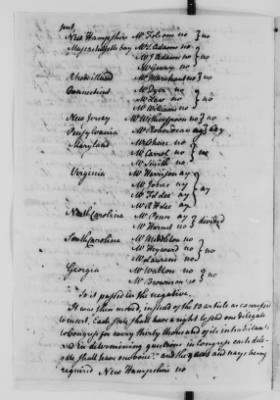 sent,
New Hampshire Mr Folsom no } no
Massachusetts bay Mr S. Adams no
Mr J Adams no } no
Mr Gerry no
Rhode island Mr Marchant no } no
Connecticut Mr Dyer no
Mr Law no } no
Mr Williams no
New Jersey Mr Witherspoon no } no
Pensylvania Mr Roberdeau ay } ay
Maryland Mr Chase no
Mr Carrol no } no
Mr Smith no
Virginia Mr Harrison ay
Mr Jones ay
Mr F L Lee ay } ay
Mr R H Lee ay
North Carolina Mr Penn ay
Mr Harnet no } divided
South Carolina Mr Middleton no
Mr Heyward no } no
Mr Laurens no
Georgia Mr Walton no
Mr Brownson no } no
So it passed in the negative.
It was then moved, instead of the article as
to insert, Each state shall have a right to send one delegate
to Congress for every thirty thousand of its inhabitants
and in determining questions in Congress each dele-
gate shall have one vote: and the yeas and nays being
required New Hampshire no